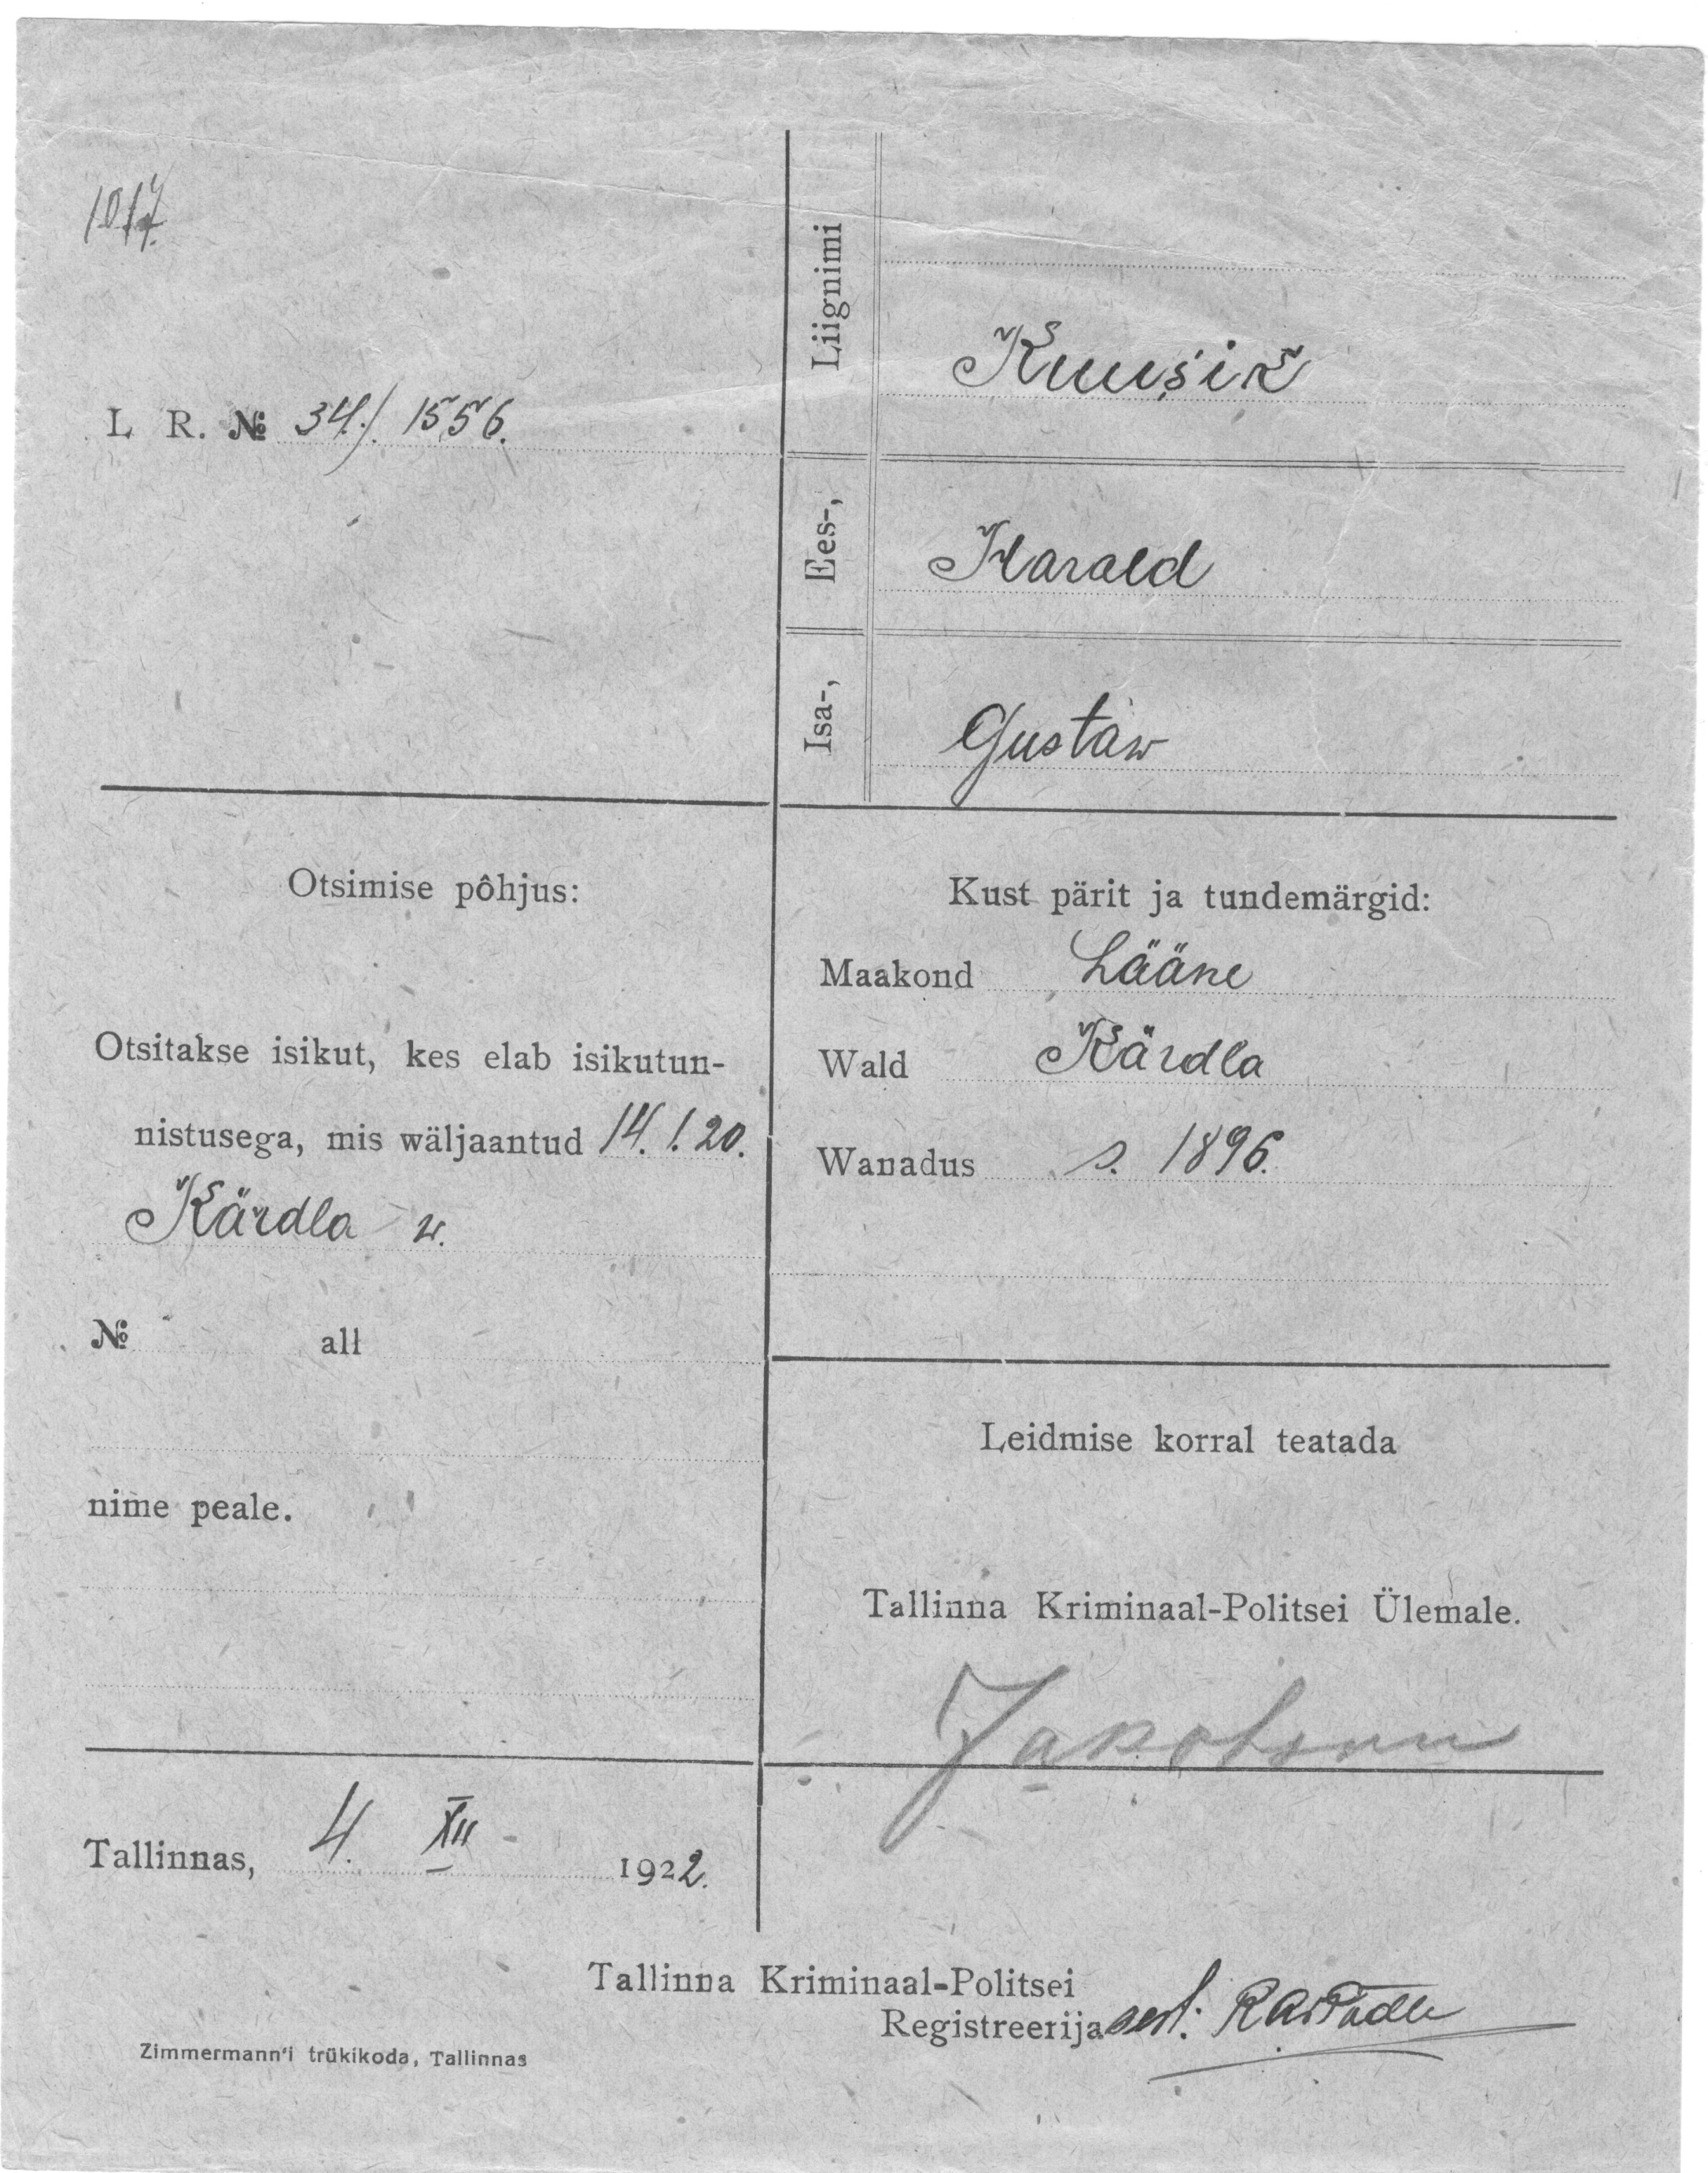 1017.
L R. № 34./. 1556.
Liignimi
Kuusik
Ees-,
Harald
Isa-,
Gustaw
Otsimise pôhjus:
Otsitakse isikut, kes elab isikutun-
nistusega, mis wäljaantud 14. I. 20.
Kärdla w.
№ all
nime peale.
Kust pärit ja tundemärgid:
Maakond Lääne
Wald Kärdla
Wanadus s. 1896.
Leidmise korral teatada
Tallinna Kriminaal-Politsei Ülemale.
Jakobson
Tallinnas, 4. XII 1922.
Tallinna Kriminaal-Politsei
Registreerija
Zimmermann'i trükikoda, Tallinnas